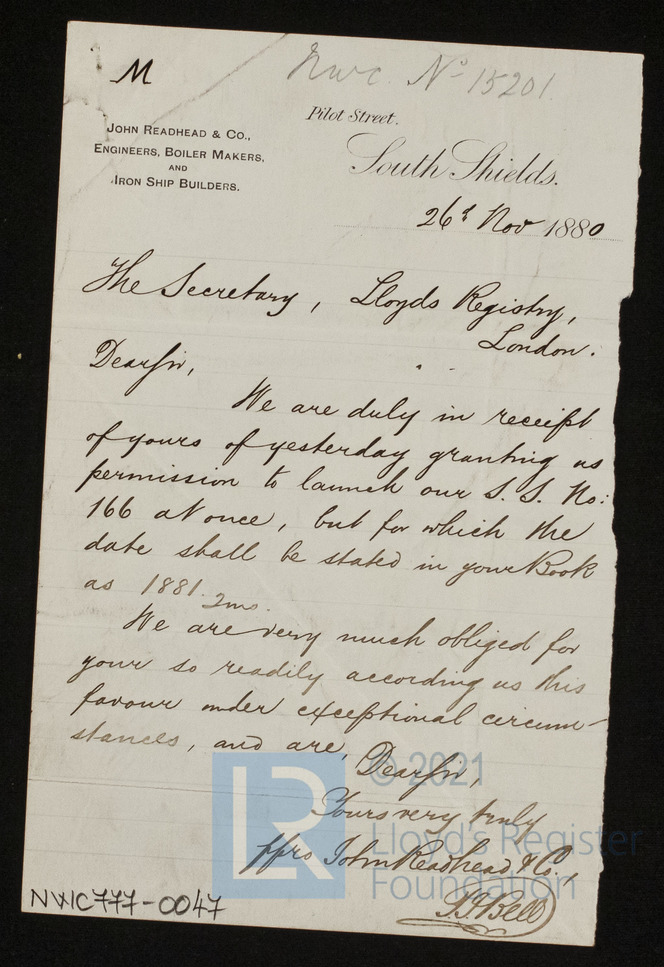 M
Nwc. No 15201.
Pilot Street.
JOHN READHEAD & CO.,
ENGINEERS, BOILER MAKERS,
AND
IRON SHIP BUILDERS.
South Shields.
26th Nov 1880
The Secretary, Lloyds Registry,
London.
Dear Sir,
We are duly in receipt
of yours of yesterday granting us
permission to launch our S. S. No:
166 at once, but for which the
date shall be stated in your Book
as 1881. 2mo.
We are very much obliged for
your so readily according us this
favour under exceptional circum-
stances, and are,
Dear Sir,
Yours very truly
ppro John Readhead & Co.,
J.J. Bell
NWC777-0047
LR
© 2021
Lloyd's Register
Foundation